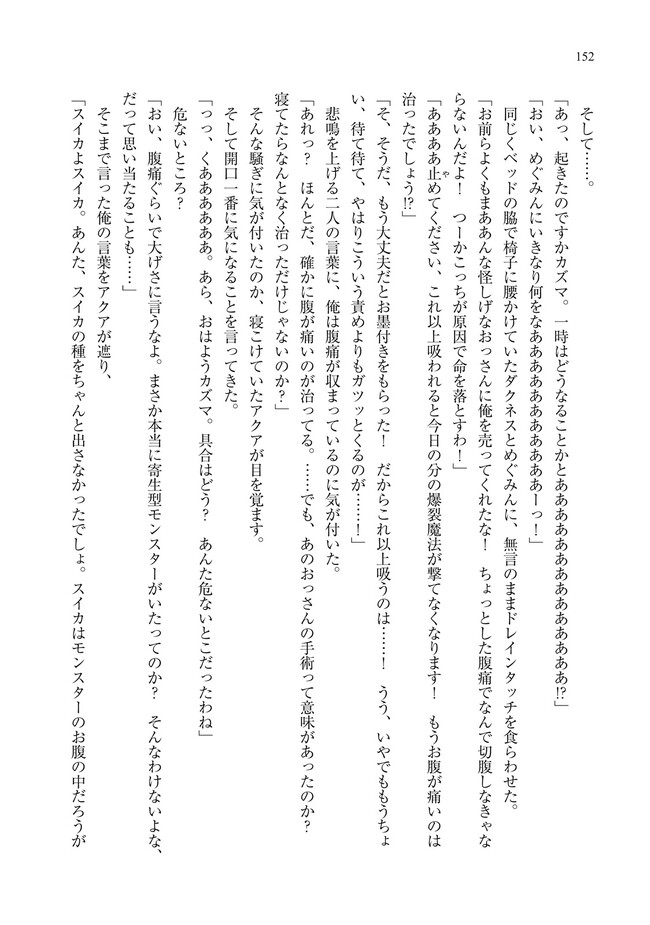 152
そして……。
「あっ、起きたのですかカズマ。一時はどうなることかとああああああああああああああ!?」
「おい、めぐみんにいきなり何をなああああああああああああーっ！」
同じくベッドの脇で椅子に腰かけていたダクネスとめぐみんに、無言のままドレインタッチを食らわせた。
「お前らよくもまああんな怪しげなおっさんに俺を売ってくれたな！　ちょっとした腹痛でなんで切腹しなきゃな
らないんだよ！　つーかこっちが原因で命を落とすわ！」
「ああああ止めてください、これ以上吸われると今日の分の爆裂魔法が撃てなくなります！　もうお腹が痛いのは
治ったでしょう!?」
「そ、そうだ、もう大丈夫だとお墨付きをもらった！　だからこれ以上吸うのは……！　うう、いやでももうちょ
い、待て待て、やはりこういう責めよりもガツッとくるのが……！」
悲鳴を上げる二人の言葉に、俺は腹痛が収まっているのに気が付いた。
「あれっ？　ほんとだ、確かに腹が痛いのが治ってる。……でも、あのおっさんの手術って意味があったのか？
寝てたらなんとなく治っただけじゃないのか？」
そんな騒ぎに気が付いたのか、寝こけていたアクアが目を覚ます。
そして開口一番に気になることを言ってきた。
「っっ、くああああああ。あら、おはようカズマ。具合はどう？　あんた危ないとこだったわね」
危ないところ？
「おい、腹痛ぐらいで大げさに言うなよ。まさか本当に寄生型モンスターがいたってのか？　そんなわけないよな、
だって思い当たることも……」
そこまで言った俺の言葉をアクアが遮り、
「スイカよスイカ。あんた、スイカの種をちゃんと出さなかったでしょ。スイカはモンスターのお腹の中だろうが